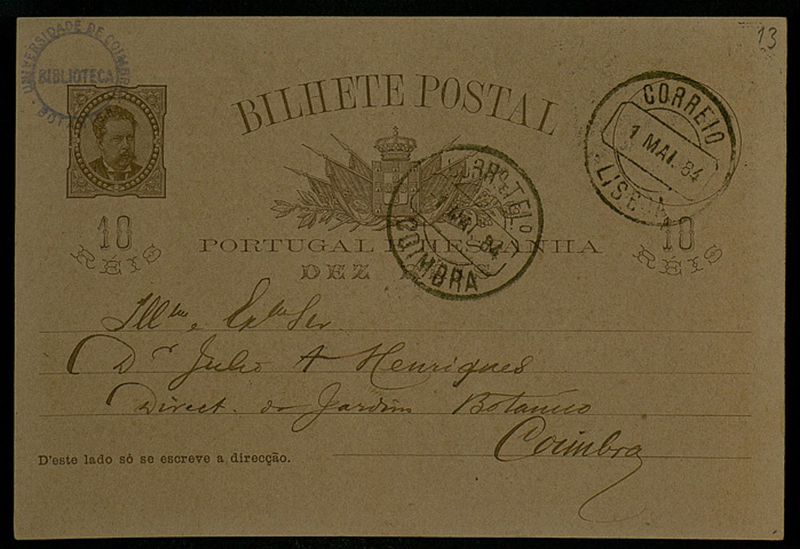 13
UNIVERSIDADE DE COIMBRA
BIBLIOTECA
BILHETE POSTAL
CORREIO
1 MAI. 84
LISBOA
CORRº TELº
1 MAI. 84
COIMBRA
10
REIS
10
REIS
PORTUGAL E HESPANHA
DEZ REIS
Illmo e Exmo Snr.
Dr Julio A Henriques
Direct. do Jardim Botanico
Coimbra
D'este lado só se escreve a direcção.